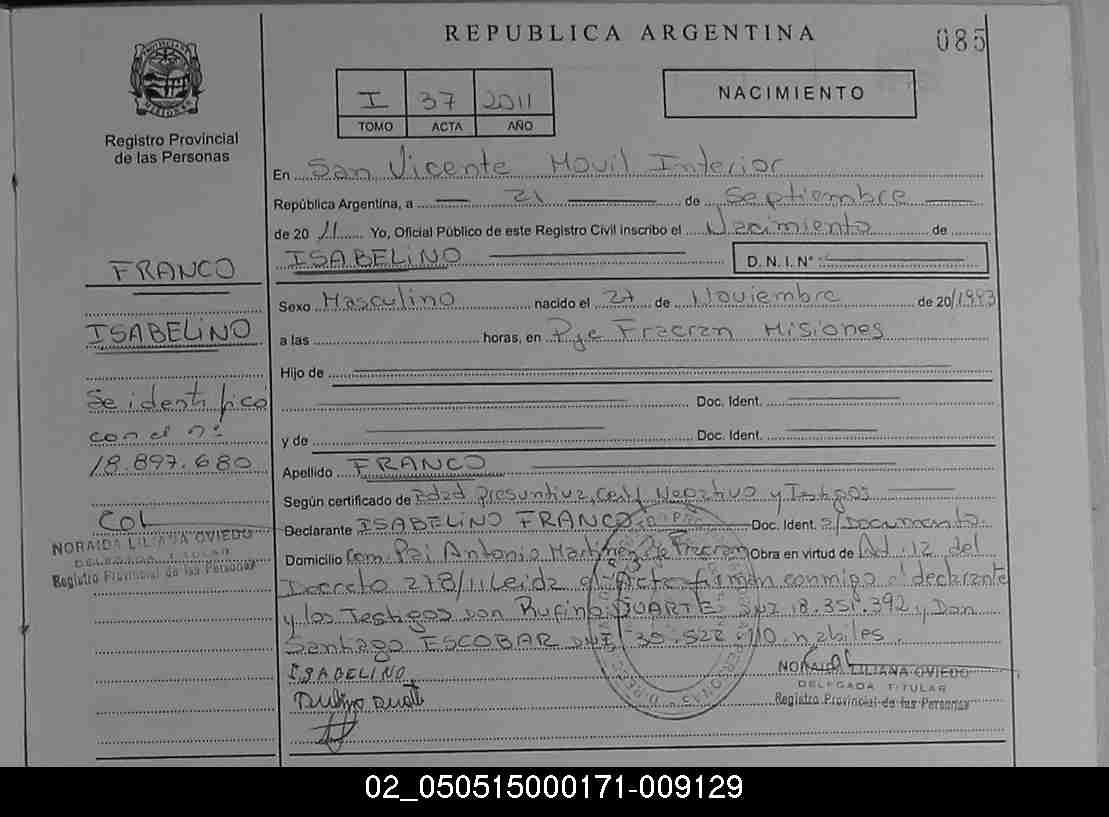 REPUBLICA ARGENTINA
085
I 37 2011
TOMO ACTA AÑO
NACIMIENTO
Registro Provincial
de las Personas
En San Vicente Movil Interior
República Argentina, a 21 de Septiembre
de 20 11 Yo, Oficial Público de este Registro Civil inscribo el Nacimiento de
ISABELINO D. N. I. N°
FRANCO
ISABELINO
Se identificó
con el nº
18.897.680
Sexo Masculino nacido el 27 de Noviembre de 20/1993
a las horas, en Pje Fracran Misiones
Hijo de
Doc. Ident.
y de Doc. Ident.
Apellido FRANCO
Según certificado de Edad Presuntiva, Cert. Negativo y Testigos
Declarante ISABELINO FRANCO Doc. Ident. s/Documento
Domicilio Com. Pai Antonio Martinez Pje Fracran Obra en virtud de Art. 12 del
Decreto 278/11 Leida el Acta firman conmigo el declarante
y los Testigos don Rufino DUARTE DNI 18.351.392 y Don
Santiago ESCOBAR DNI 30.522.110 habiles.
ISABELINO
NORAIDA LILIANA OVIEDO
DELEGADA TITULAR
Registro Provincial de las Personas
NORAIDA LILIANA OVIEDO
DELEGADA TITULAR
Registro Provincial de las Personas
02_050515000171-009129